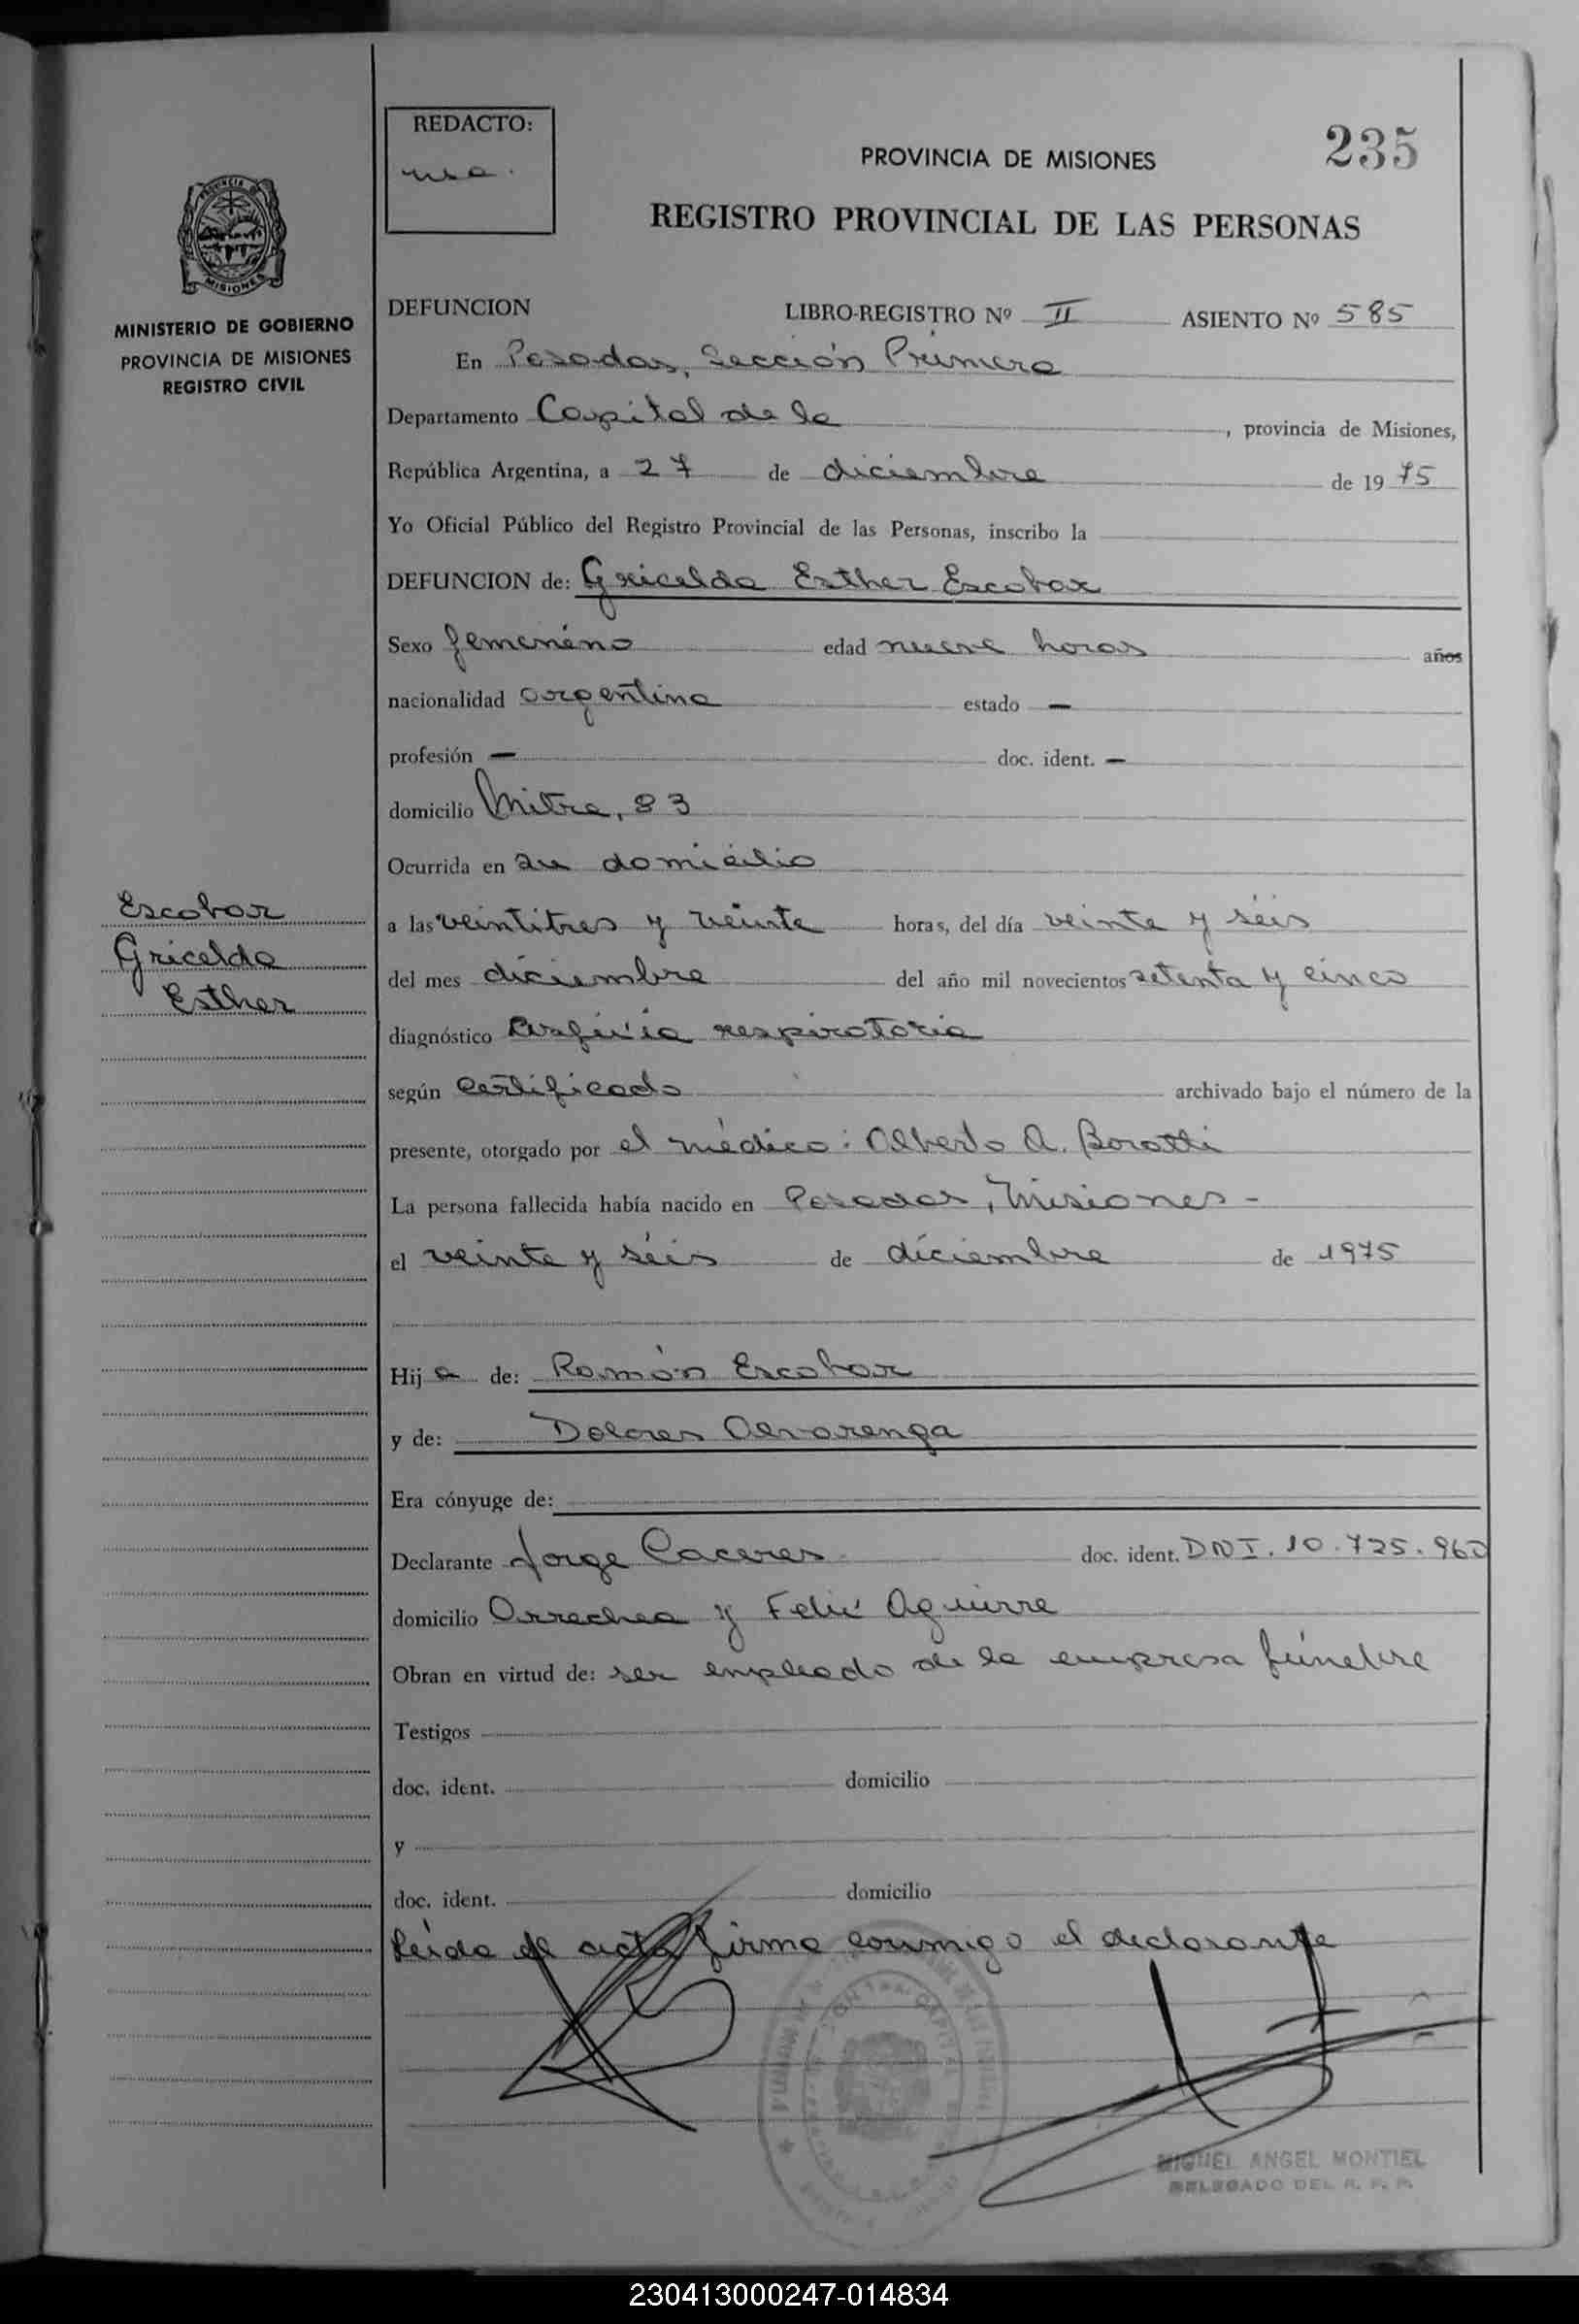 REDACTO:
PROVINCIA DE MISIONES
235
REGISTRO PROVINCIAL DE LAS PERSONAS
MINISTERIO DE GOBIERNO
PROVINCIA DE MISIONES
REGISTRO CIVIL
DEFUNCION LIBRO-REGISTRO Nº II ASIENTO Nº 585
En Posadas, Sección Primera
Departamento Capital de la , provincia de Misiones,
República Argentina, a 27 de diciembre de 1975
Yo Oficial Público del Registro Provincial de las Personas, inscribo la
DEFUNCION de: Gricelda Esther Escobar
Sexo femenino edad nueve horas años
nacionalidad argentina estado —
profesión — doc. ident. —
domicilio Mitre, 83
Ocurrida en su domicilio
Escobar
Gricelda
Esther
a las veintitres y veinte horas, del día veinte y séis
del mes diciembre del año mil novecientos setenta y cinco
diagnóstico respiratoria
según certificado archivado bajo el número de la
presente, otorgado por el médico: Alberto A. Boratti
La persona fallecida había nacido en Posadas, Misiones -
el veinte y séis de diciembre de 1975
Hija de: Ramón Escobar
y de: Dolores Alvarenga
Era cónyuge de:
Declarante Jorge Caceres doc. ident. DNI. 10.725.960
domicilio Orrechea y Felix Aguirre
Obran en virtud de: ser empleado de la empresa fúnebre
Testigos
doc. ident. domicilio
y
doc. ident. domicilio
Leída el acta firma conmigo el declarante
MIGUEL ANGEL MONTIEL
DELEGADO DEL R. P. P.
230413000247-014834